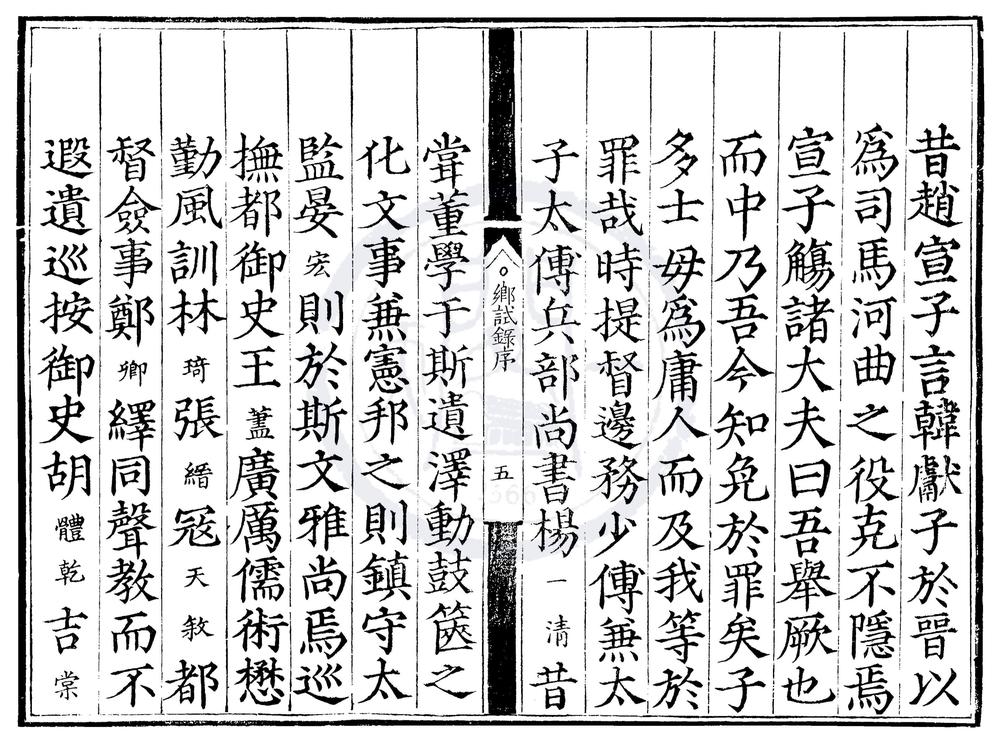 昔趙宣子言韓獻子於晉以
爲司馬河曲之役克不隱焉
宣子觴諸大夫曰吾舉厥也
而中乃吾今知免於罪矣子
多士毋爲庸人而及我等於
罪哉時提督邊務少傅兼太
子太傅兵部尚書楊一清昔
鄉試錄序
五
嘗董學于斯遺澤動鼓篋之
化文事兼憲邦之則鎮守太
監晏宏則於斯文雅尚焉巡
撫都御史王藎廣厲儒術懋
勤風訓林琦張縉寇天敘都
督僉事鄭卿繹同聲教而不
遐遺巡按御史胡體乾吉棠